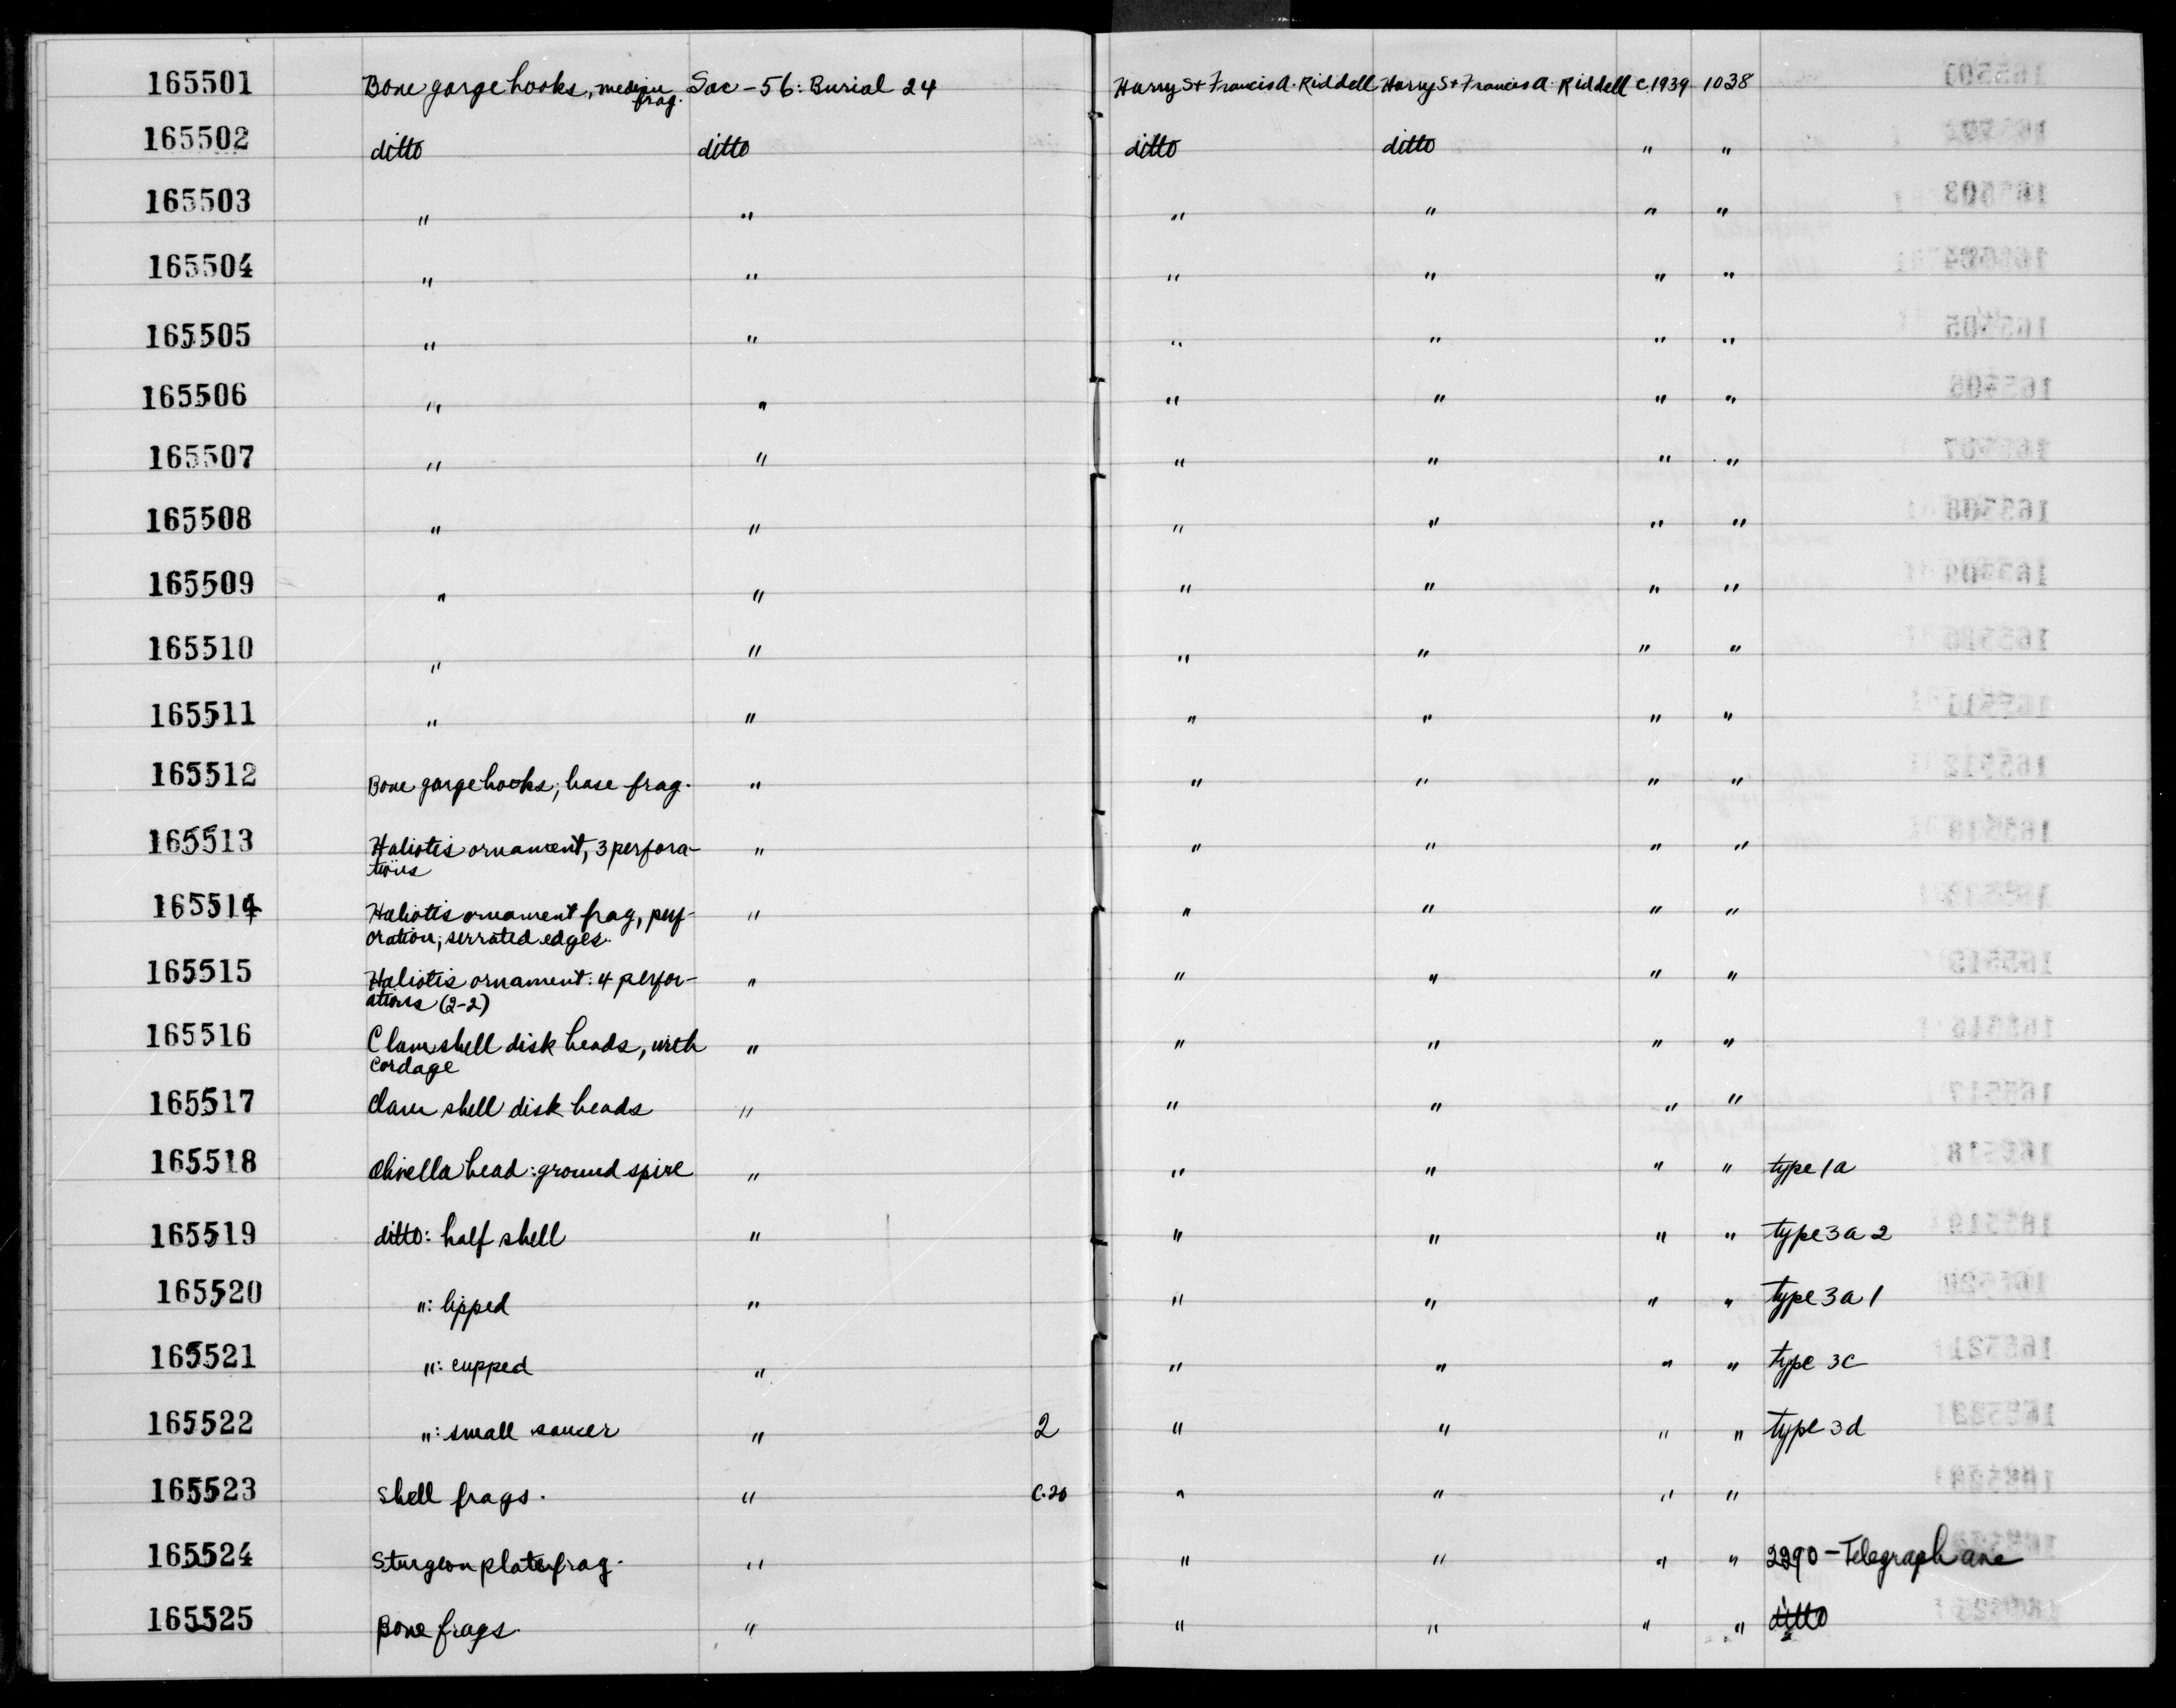 165501 Bone gorge hooks, median frag. Sac-56: Burial 24 Harry S + Francis A. Riddell Harry S + Francis A. Riddell c.1939 1038
165502 ditto ditto ditto ditto " "
165503 " " " " " "
165504 " " " " " "
165505 " " " " " "
165506 " " " " " "
165507 " " " " " "
165508 " " " " " "
165509 " " " " " "
165510 " " " " " "
165511 " " " " " "
165512 Bone gorge hooks; base frag. " " " " "
165513 Haliotis ornament, 3 perfora- " " " " "
tions
165514 Haliotis ornament frag, perf- " " " " "
oration; serrated edges.
165515 Haliotis ornament: 4 perfor- " " " " "
ations (2-2)
165516 Clam shell disk beads, with " " " " "
cordage
165517 Clam shell disk beads " " " " "
165518 Olivella bead: ground spire " " " " " type 1a
165519 ditto: half shell " " " " " type 3a2
165520 ": lipped " " " " " type 3a1
165521 ": cupped " " " " " type 3c
165522 ": small saucer " 2 " " " " type 3d
165523 Shell frags. " c.20 " " " "
165524 Sturgeon plate frag. " " " " " 2290-Telegraph ave
165525 Bone frags. " " " " " ditto